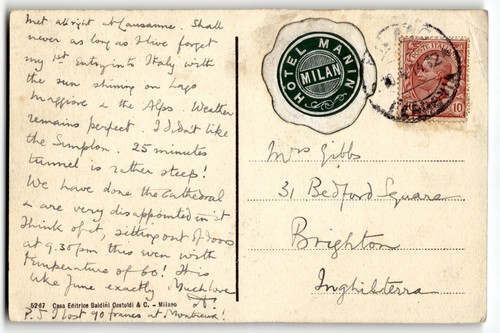 Met alright at Lausanne. Shall
never as long as I live forget
my 1st entry into Italy with
the sun shining on Lago
Maggiore & the Alps. Weather
remains perfect. I didn't like
the Simplon. 25 minutes
tunnel is rather steep!
We have done the Cathedral
& are very disappointed in it
Think of it, sitting out of doors
at 9.30pm this even with
temperature of 60! It is
like June exactly Much love
P.S I lost 90 francs at Montreux!
5267 Casa Editrice Baldini Castoldi & C. - Milano
HOTEL MANIN
MILAN
10
Mrs Gibbs
31 Bedford Square
Brighton
Inghilterra